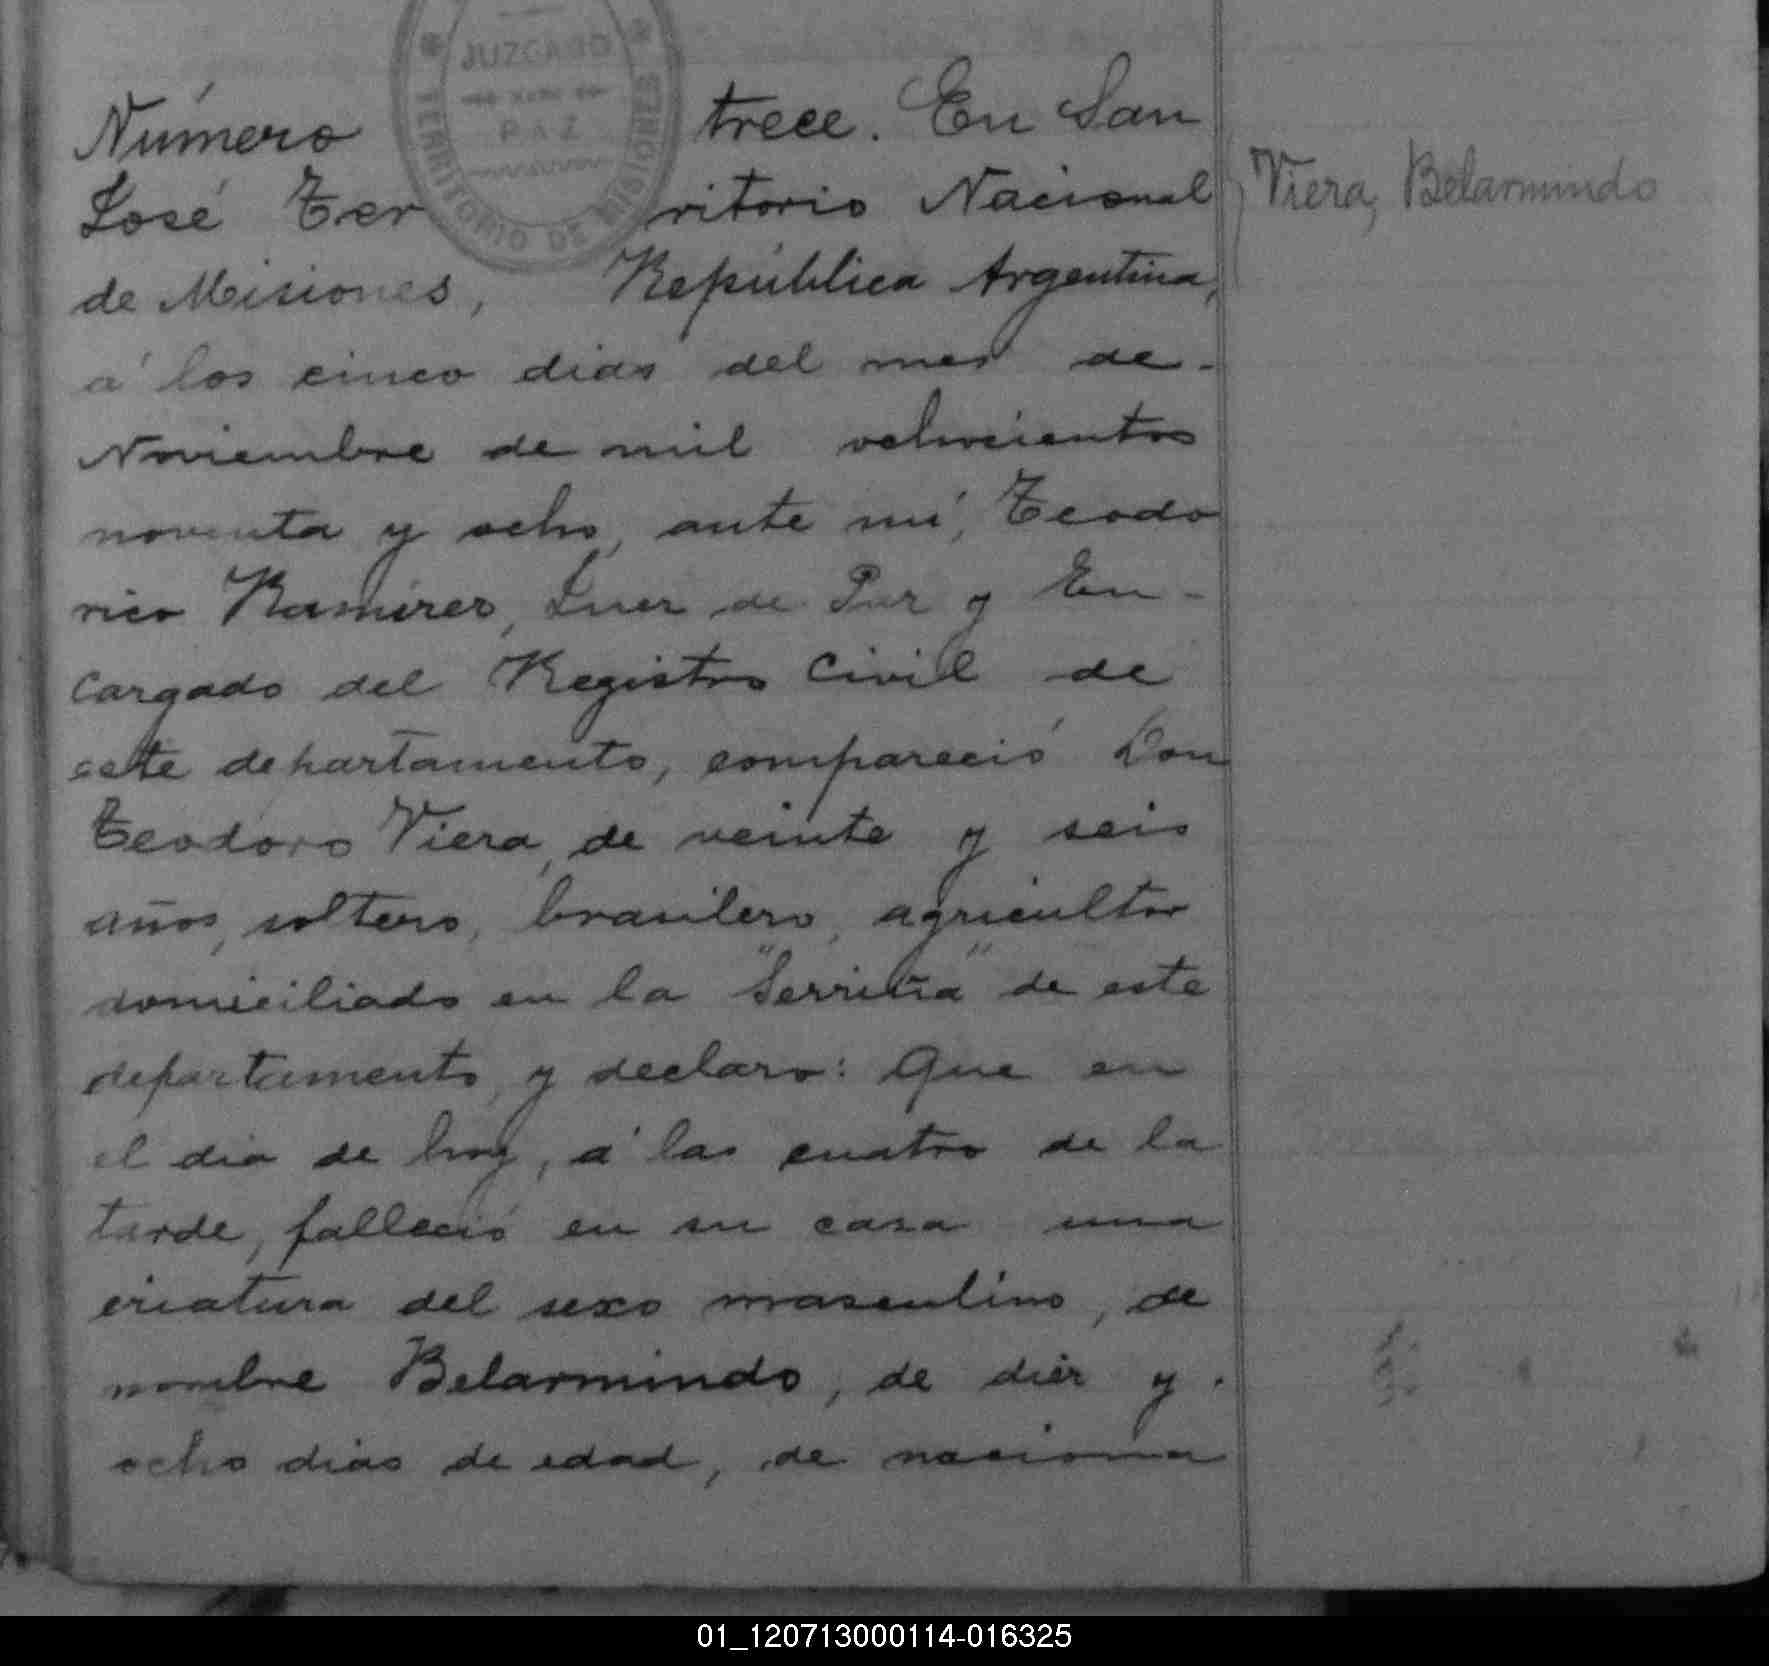 JUZGADO
PAZ
TERRITORIO DE MISIONES
Número trece. En San
José Ter ritorio Nacional
de Misiones, República Argentina,
á los cinco dias del mes de-
Noviembre de mil ochocientos
noventa y ocho, ante mí, Teodo
rico Ramires, Juez de Paz y En-
cargado del Registro Civil de
este departamento, compareció Don
Teodoro Viera, de veinte y seis
años, soltero, brasilero, agricultor
domiciliado en la "Serriña" de este
departamento, y declaro: Que en
el dia de hoy, á las cuatro de la
tarde, falleció en su casa una
criatura del sexo masculino, de
nombre Belarmindo, de diez y
ocho dias de edad, de naciona
Viera, Belarmindo
01_120713000114-016325